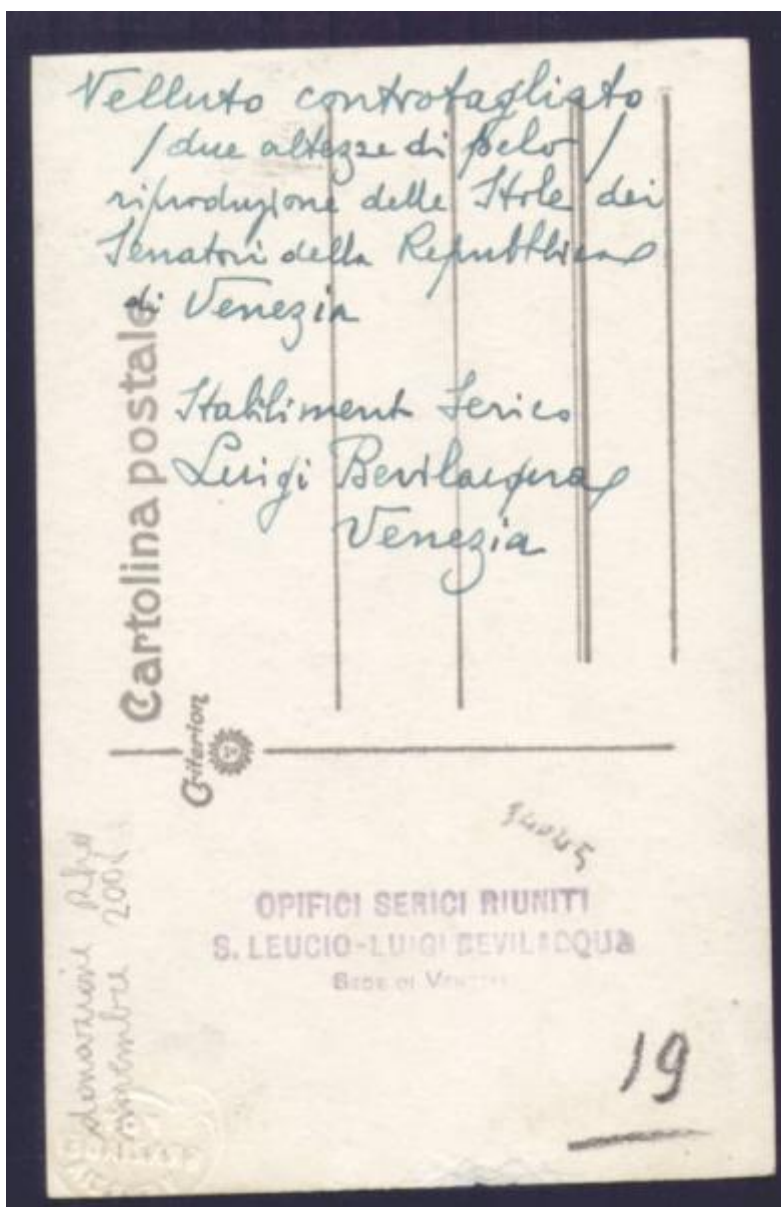 Velluto controtagliato
/ due altezze di pelo /
riproduzione delle Stole dei
Senatori della Repubblica
di Venezia
Stabiliment Serico
Luigi Bevilacqua
Venezia
Cartolina postale
Criterion
34045
OPIFICI SERICI RIUNITI
S. LEUCIO-LUIGI BEVILACQUA
SEDE DI VENEZIA
donazione
2002
19